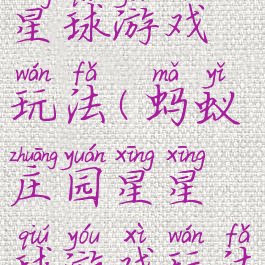 星球游戏
wán fǎ mǎ yǐ
玩法(蚂蚁
zhuāng yuán xīng xīng
庄园星星
qiú yóu xì wán fǎ
球游戏玩法